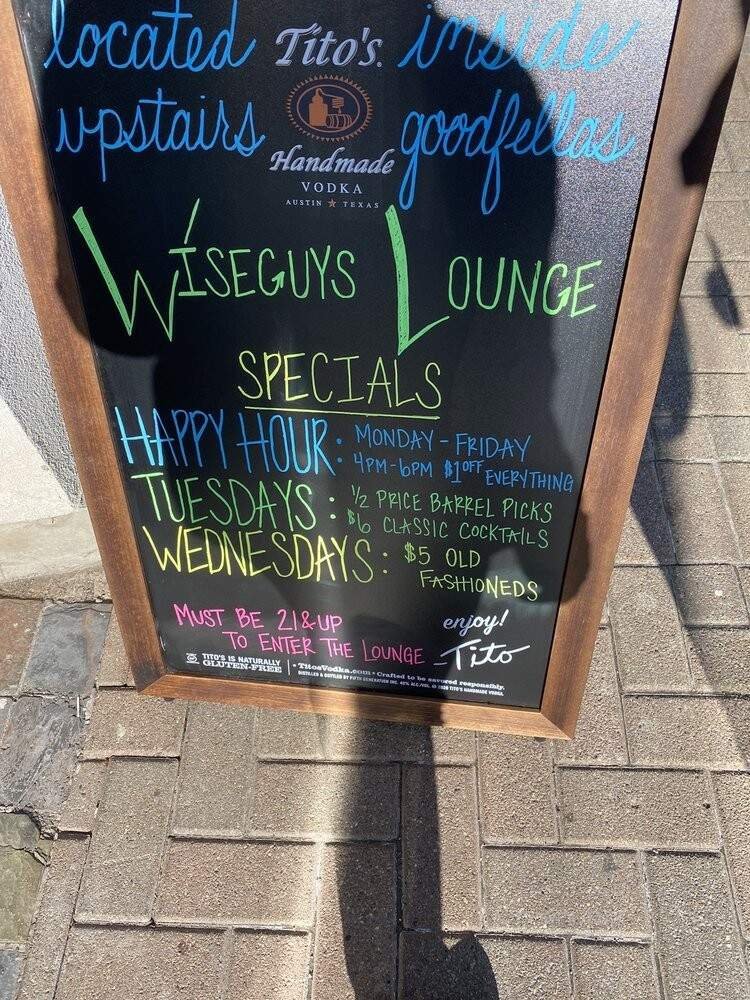 located Tito's. inside
upstairs goodfellas
Handmade
VODKA
AUSTIN ★ TEXAS
WISEGUYS LOUNGE
SPECIALS
HAPPY HOUR: MONDAY - FRIDAY
4PM-6PM $1 OFF EVERYTHING
TUESDAYS: 1/2 PRICE BARREL PICKS
$6 CLASSIC COCKTAILS
WEDNESDAYS: $5 OLD
FASHIONEDS
MUST BE 21 & UP
TO ENTER THE LOUNGE
enjoy!
-Tito
TITO'S IS NATURALLY
GLUTEN-FREE
• TitosVodka.com • Crafted to be savored responsibly.
DISTILLED & BOTTLED BY FIFTH GENERATION INC. 40% ALC./VOL. © 2020 TITO'S HANDMADE VODKA.